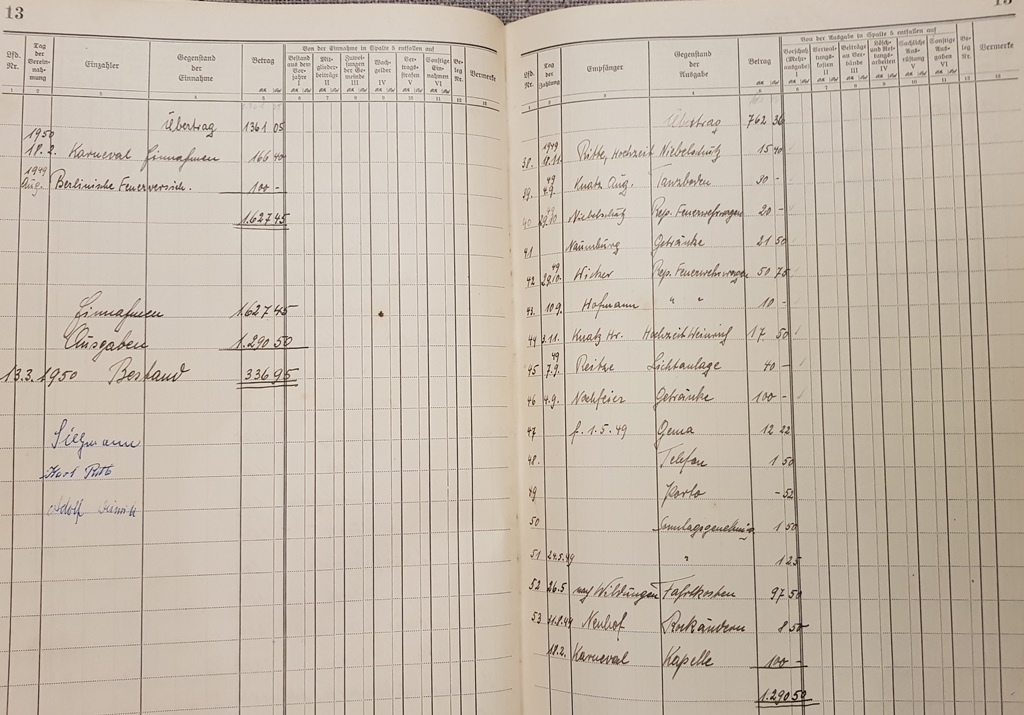 13
Lfd. Nr.
Tag der Vereinnahmung
Einzahler
Gegenstand der Einnahme
Betrag
Von der Einnahme in Spalte 5 entfallen auf
Bestand aus dem Vorjahre I
Mitgliederbeiträge II
Zuweisungen der Gemeinde III
Wachgelder IV
Vertragsstrafen V
Sonstige Einnahmen VI
Beleg Nr.
Vermerke
1 2 3 4 5 6 7 8 9 10 11 12 13
Übertrag 1361 05
1950
18.2. Karneval Einnahmen 166 40
1949
Aug. Berlinische Feuerversich. 100 -
1.627 45
Einnahmen 1.627 45
Ausgaben 1.290 50
13.3.1950 Bestand 336 95
Siegmann
Karl
Adolf
Lfd. Nr.
Tag der Zahlung
Empfänger
Gegenstand der Ausgabe
Betrag
Von der Ausgabe in Spalte 5 entfallen auf
Vorschuß (Mehrausgabe) I
Verwaltungskosten II
Beiträge an Verbände III
Lösch- und Rettungsarbeiten IV
Sachliche Ausrüstung V
Sonstige Ausgaben VI
Beleg Nr.
Vermerke
Übertrag 762 36
1949
38. 18.11. Ritte, Hochzeit Niebelschütz 15 40
49
39. 4.9. Knatz Aug. Tanzboden 30 -
49
40 29.10 Niebelschütz Rep. Feuerwehrwagen 20 -
41 Naumburg Getränke 21 50
49
42 29.10. Wicker Rep. Feuerwehrwagen 50 75
43. 10.9. Hofmann " " 10 -
44 3.11. Knatz Hr. Hochzeit Heinrich 17 50
49
45 7.9. Reitze Lichtanlage 40 -
46 4.9. Nachfeier Getränke 100 -
47 f. 1.5.49 Gema 12 22
48. Telefon 1 50
49 Porto - 52
50 Sonntagsgenehmig. 1 50
51 24.5.49 " 1 25
52 26.5 nach Wildungen Fahrtkosten 97 50
53 31.8.49 Neuhof Rockändern 8 50
18.2. Karneval Kapelle 100 -
1.290 50